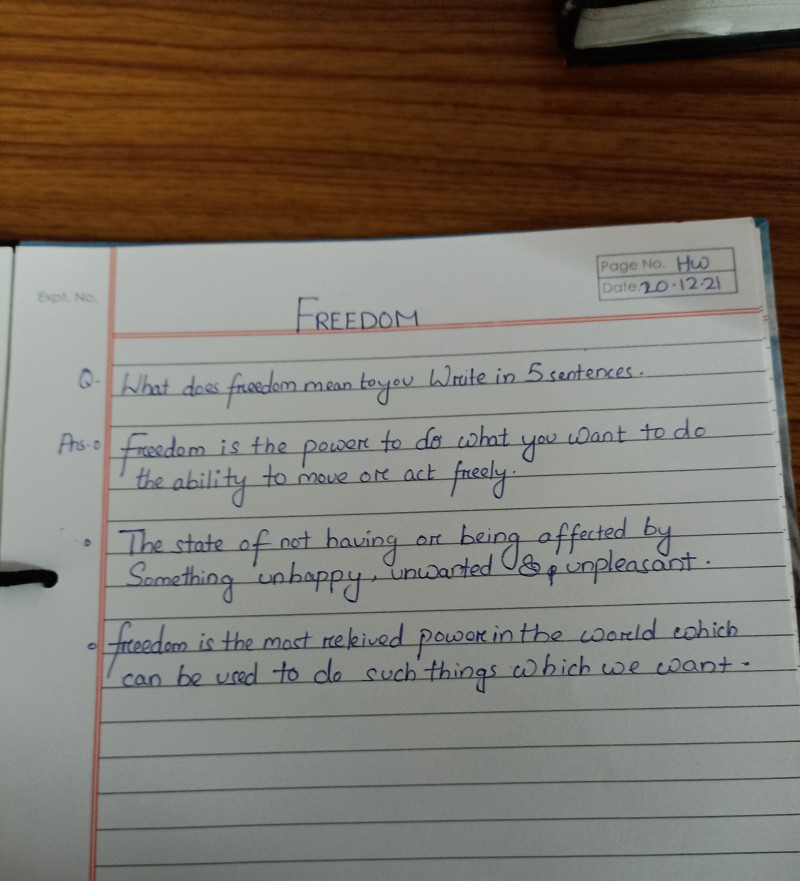 Page No. HW
Date: 20.12.21
Expt. No.
FREEDOM
Q- What does freedom mean to you Write in 5 sentences.
Ans- Freedom is the power to do what you want to do
the ability to move or act freely.
The state of not having or being affected by
Something unhappy, unwanted & unpleasant.
freedom is the most rekived power in the world which
can be used to do such things which we want.